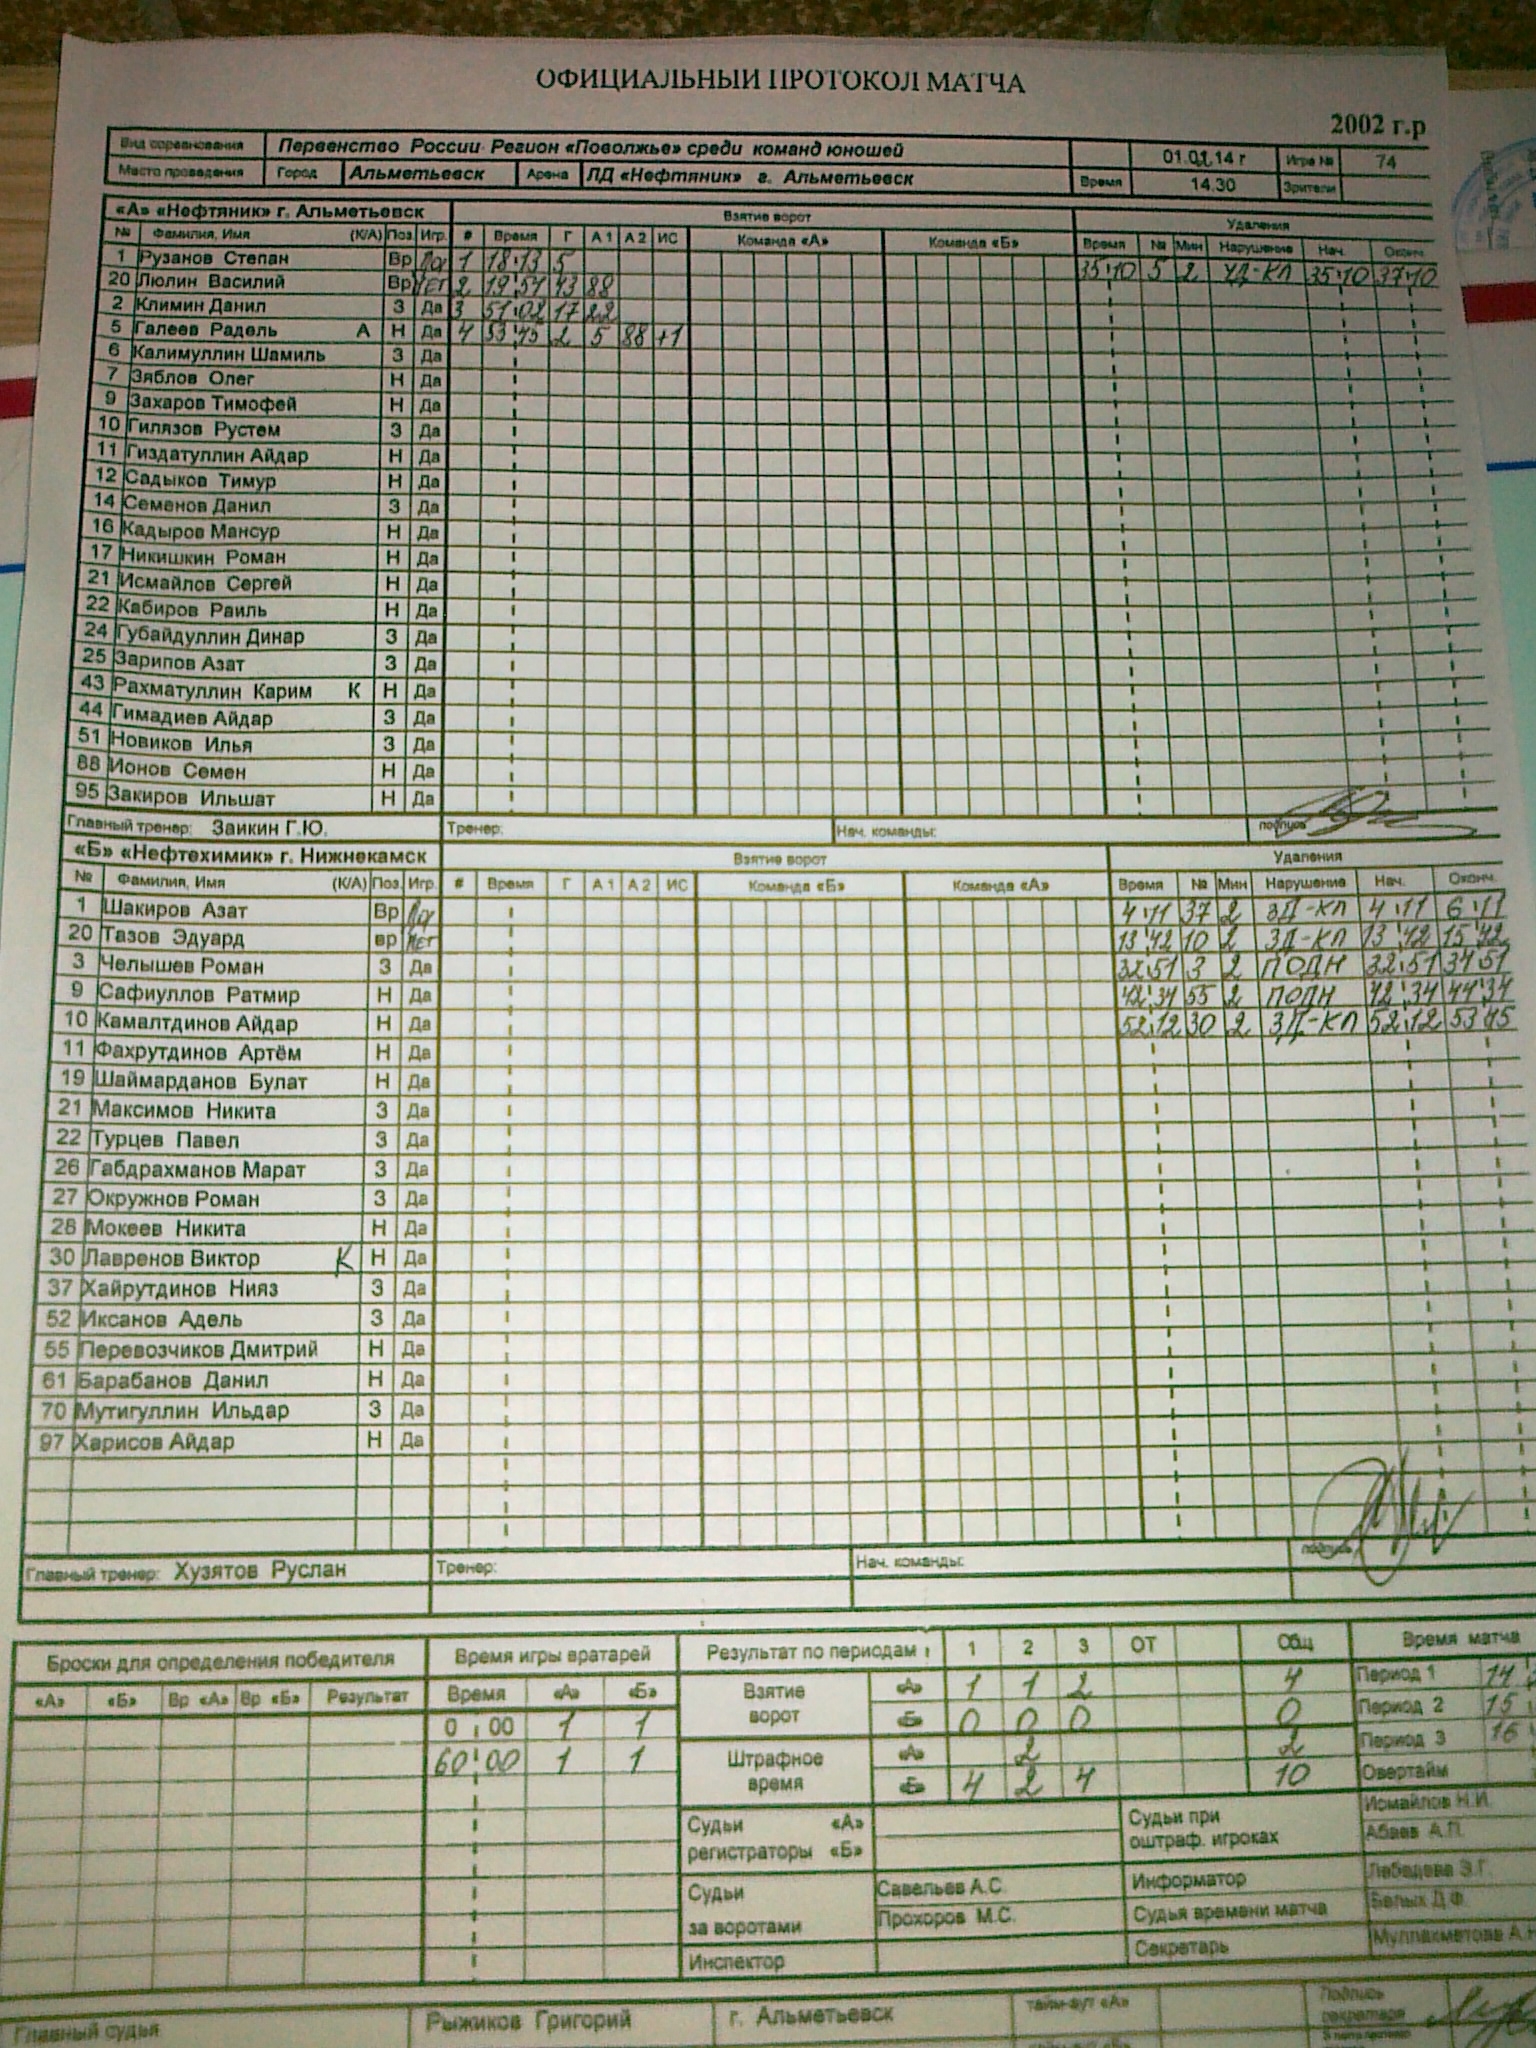 ОФИЦИАЛЬНЫЙ ПРОТОКОЛ МАТЧА
2002 г.р
Вид соревнования Первенство России Регион «Поволжье» среди команд юношей 01.02.14 г Игра № 74
Место проведения Город Альметьевск Арена ЛД «Нефтяник» г. Альметьевск Время 14.30 Зрители
«А» «Нефтяник» г. Альметьевск Взятие ворот Удаления
№ Фамилия, Имя (К/А) Поз. Игр. # Время Г А 1 А 2 ИС Команда «А» Команда «Б» Время № Мин Нарушение Нач. Оконч.
1 Рузанов Степан Вр 1 18:13 5 35:10 5 2 УД-КЛ 35:10 37:10
20 Люлин Василий Вр 2 19:54 43 88
2 Климин Данил З Да 3 51:02 17 22
5 Галеев Радель А Н Да 4 53:45 2 5 88 +1
6 Калимуллин Шамиль З Да
7 Зяблов Олег Н Да
9 Захаров Тимофей Н Да
10 Гилязов Рустем З Да
11 Гиздатуллин Айдар Н Да
12 Садыков Тимур Н Да
14 Семенов Данил З Да
16 Кадыров Мансур Н Да
17 Никишкин Роман Н Да
21 Исмайлов Сергей Н Да
22 Кабиров Раиль Н Да
24 Губайдуллин Динар З Да
25 Зарипов Азат З Да
43 Рахматуллин Карим К Н Да
44 Гимадиев Айдар З Да
51 Новиков Илья З Да
88 Ионов Семен Н Да
95 Закиров Ильшат Н Да
Главный тренер: Заикин Г.Ю. Тренер: Нач. команды: подпись
«Б» «Нефтехимик» г. Нижнекамск Взятие ворот Удаления
№ Фамилия, Имя (К/А) Поз. Игр. # Время Г А 1 А 2 ИС Команда «Б» Команда «А» Время № Мин Нарушение Нач. Оконч.
1 Шакиров Азат Вр 4:11 37 2 ЗД-КЛ 4:11 6:11
20 Тазов Эдуард вр 13:42 10 2 ЗД-КЛ 13:42 15:42
3 Челышев Роман З Да 32:51 3 2 ПОДН 32:51 34:51
9 Сафиуллов Ратмир Н Да 42:34 55 2 ПОДН 42:34 44:34
10 Камалтдинов Айдар Н Да 52:12 30 2 ЗД-КЛ 52:12 53:45
11 Фахрутдинов Артём Н Да
19 Шаймарданов Булат Н Да
21 Максимов Никита З Да
22 Турцев Павел З Да
26 Габдрахманов Марат З Да
27 Окружнов Роман З Да
28 Мокеев Никита Н Да
30 Лавренов Виктор К Н Да
37 Хайрутдинов Нияз З Да
52 Иксанов Адель З Да
55 Перевозчиков Дмитрий Н Да
61 Барабанов Данил Н Да
70 Мутигуллин Ильдар З Да
97 Харисов Айдар Н Да
Главный тренер: Хузятов Руслан Тренер: Нач. команды: подпись
Броски для определения победителя Время игры вратарей Результат по периодам 1 2 3 ОТ Общ Время матча
«А» «Б» Вр «А» Вр «Б» Результат Время «А» «Б» Взятие ворот «А» 1 1 2 4 Период 1 14
0:00 1 1 «Б» 0 0 0 0 Период 2 15
60:00 1 1 Штрафное время «А» 2 2 Период 3 16
«Б» 4 2 4 10 Овертайм
Судьи «А» Судьи при Исмайлов Н.И.
регистраторы «Б» оштраф. игроках Абаев А.П.
Судьи Савельев А.С. Информатор Лебедева Э.Г.
за воротами Прохоров М.С. Судья времени матча Белых Д.Ф.
Инспектор Секретарь Муллахметова А.Н
Главный судья Рыжиков Григорий г. Альметьевск тайм-аут «А» Подпись секретаря